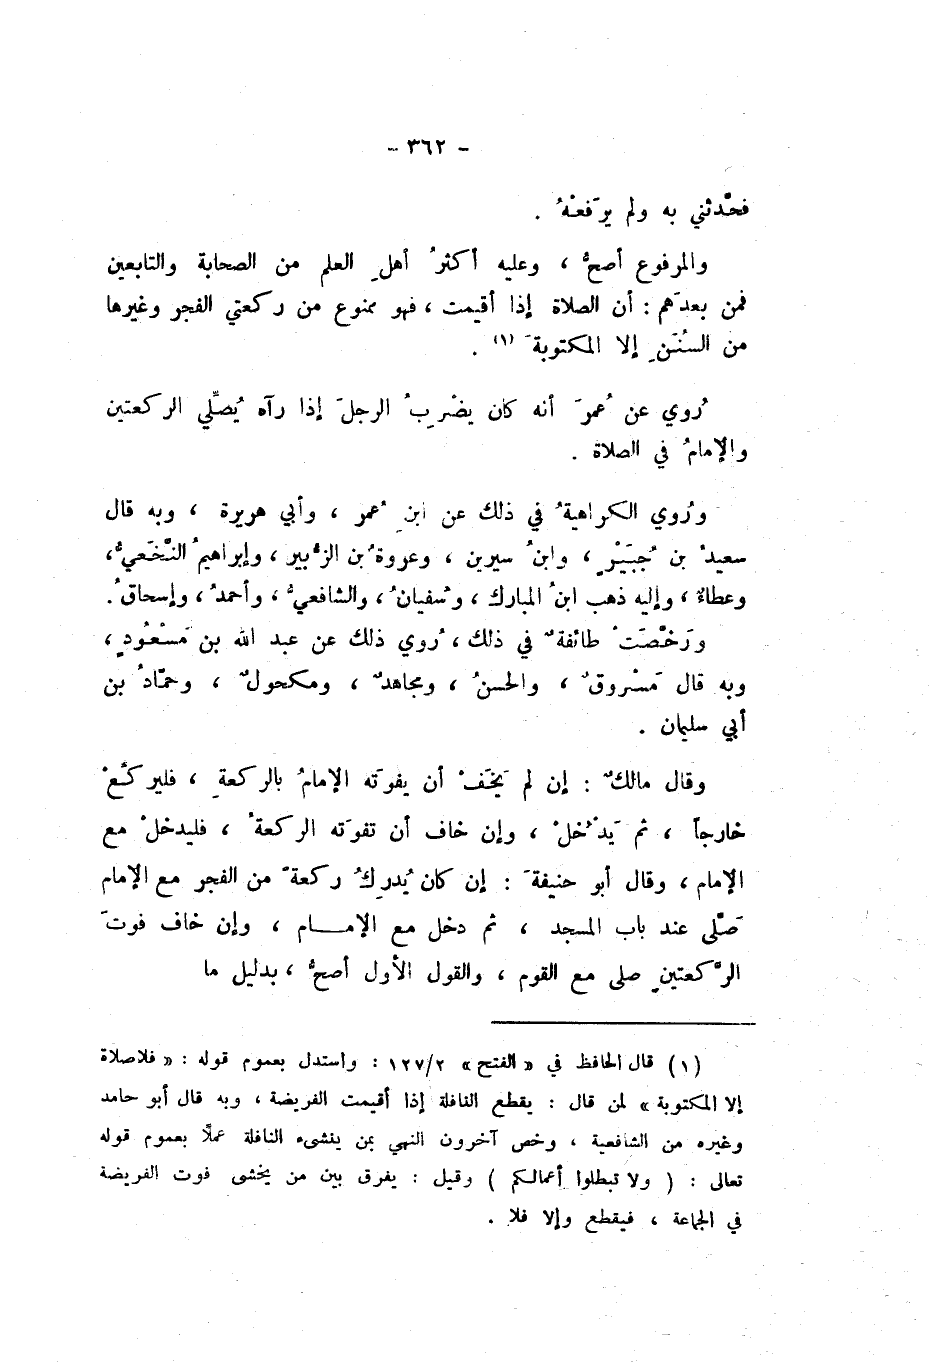 - ٣٦٢ -
فحدَّثني به ولم يرفعْهُ .
والمرفوع أصحُّ ، وعليه أكثرُ أهلِ العلم من الصحابة والتابعين
فمن بعدَهم : أن الصلاة إذا أقيمت ، فهو ممنوع من ركعتي الفجر وغيرها
من السُنَنِ إلا المكتوبةَ (١) .
رُوي عن عُمرَ أنه كان يضْرِبُ الرجلَ إذا رآه يُصلِّي الركعتين
والإمامُ في الصلاة .
ورُوي الكراهيةُ في ذلك عن ابنِ عُمر ، وأبي هريرة ، وبه قال
سعيدُ بن جُبَيْرٍ ، وابنُ سيرين ، وعروةُ بن الزُّبير ، وإبراهيمُ النَّخَعيُّ ،
وعطاءٌ ، وإليه ذهب ابنُ المبارك ، وسُفيانُ ، والشافعيُّ ، وأحمدُ ، وإسحاقُ .
ورَخَّصَتْ طائفةٌ في ذلك ، رُوي ذلك عن عبد الله بن مَسْعُودٍ ،
وبه قال مَسْروقٌ ، والحسنُ ، ومجاهدٌ ، ومكحولٌ ، وحمَّادُ بن
أبي سليمان .
وقال مالكٌ : إن لم يَخَفْ أن يفوتَه الإمامُ بالركعةِ ، فليركَعْ
خارجاً ، ثم يَدْخُلْ ، وإن خاف أن تفوتَه الركعةُ ، فليدخلْ مع
الإمام ، وقال أبو حنيفةَ : إن كان يُدرِكُ ركعةً من الفجر مع الإمام
صَلَّى عند باب المسجد ، ثم دخل مع الإمــــام ، وإن خاف فوتَ
الرَّكعتينِ صلى مع القوم ، والقول الأول أصحُّ ، بدليل ما
(١) قال الحافظ في « الفتح » ١٢٧/٢ : واستدل بعموم قوله : « فلاصلاة
إلا المكتوبة » لمن قال : يقطع النافلة إذا أقيمت الفريضة ، وبه قال أبو حامد
وغيره من الشافعية ، وخص آخرون النهي بمن ينشىء النافلة عملًا بعموم قوله
تعالى : ( ولا تبطلوا أعمالكم ) وقيل : يفرق بين من يخشى فوت الفريضة
في الجماعة ، فيقطع وإلا فلا .